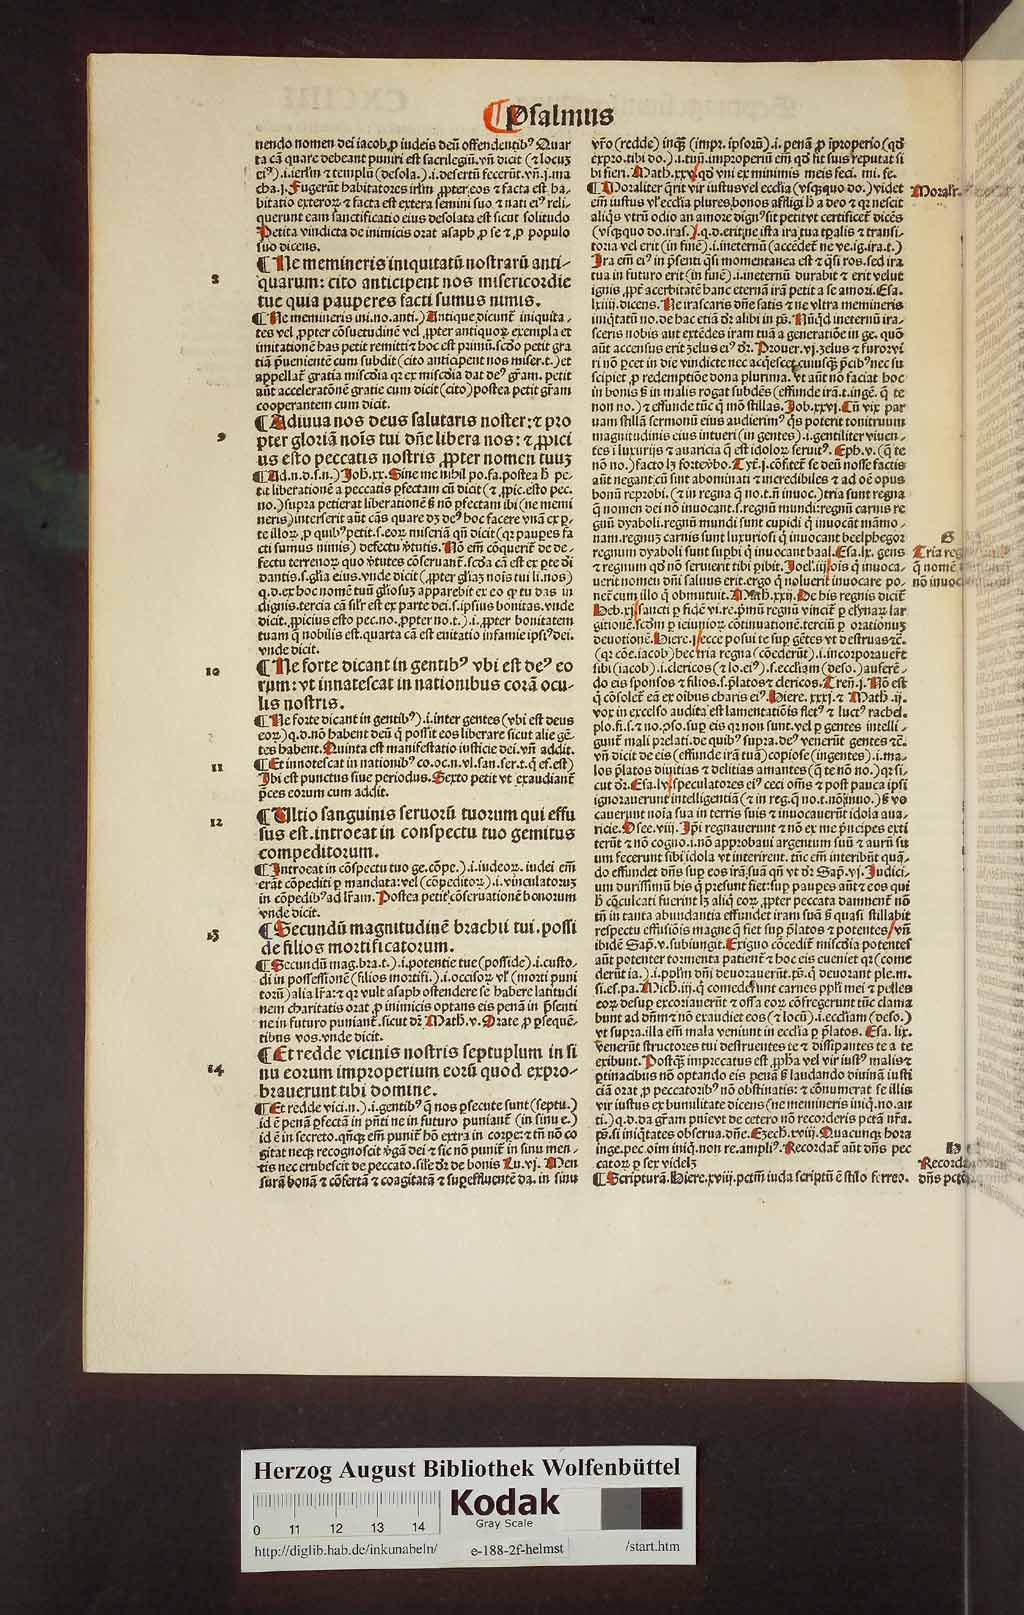 Psalmus
nendo nomen dei iacob, ꝓ iudeis deū offendentibꝰ Quar
ta cā quare debeant puniri est sacrilegiū. vn̄ dicit (⁊ locuꝫ
eiꝰ).i.ierl'm ⁊ templū (desola.).i.desertū fecerūt. vn̄.j.ma
cha.j. Fugerūt habitatores irl'm ꝓpter. eos ⁊ facta est ha-
bitatio exteroꝝ ⁊ facta est extera semini suo ⁊ nati eiꝰ reli-
querunt eam sanctificatio eius desolata est sicut solitudo
Petita vindicta de inimicis orat asaph ꝓ se ⁊ ꝓ populo
suo dicens.
8
¶ Ne memineris iniquitatū nostrarū anti-
quarum: cito anticipent nos misericordie
tue quia pauperes facti sumus nimis.
¶ Ne memineris ini.no.anti.) Antique dicunt̄ iniquita-
tes vel ꝓpter cōsuetudinē vel ꝓpter antiquoꝝ exempla et
imitationē has petit remitti ⁊ hoc est primū. scd̄o petit gra
tiā p̄uenientē cum subdit (cito anticipent nos miser.t.) et
appellat̄ gratia mīscd̄ia qꝛ ex mīscd̄ia dat deꝰ gr̄am. petit
aūt acceleratōnē gratie cum dicit (cito) postea petit gr̄am
cooperantem cum dicit.
9
¶ Adiuua nos deus salutaris noster: ⁊ pro
pter gloriā noīs tui dn̄e libera nos: ⁊ ꝓpici
us esto peccatis nostris ꝓpter nomen tuuꝫ
¶ Ad.n.d.s.n.) Joh.xx. Sine me nihil po.fa. postea h̄ pe-
tit liberationē a peccatis ꝑfectam cū dicit (⁊ ꝓpic.esto pec.
no.) supra petierat liberationē s̄ nō ꝑfectam ibi (ne memi
neris) interserit aūt cās quare dꝫ deꝰ hoc facere vnā ex ꝑ-
te illoꝝ ꝓ quibꝰ petit. s. eoꝝ miseriā qn̄ dicit (qꝛ pauꝑes fa
cti sumus nimis) defectu v̄tutis. Nō em̄ cōquerit̄ de de-
fectu terrenoꝝ quo v̄tutes cōseruant̄. scd̄a cā est ex ꝑte di
dantis. s. gl'ia eius. vnde dicit (ꝓpter gl'iaꝫ noīs tui li.nos)
q.d. ex hoc nomē tuū gl'iosuꝫ apparebit ex eo qꝛ tu das in
dignis. tercia cā silr̄ est ex parte dei. s. ipsius bonitas. vnde
dicit. ꝓpicius esto pec.no. ꝓpter no.t.).i. ꝓpter bonitatem
tuam q̄ nobilis est. quarta cā est euitatio infamie ipsꝰ dei.
vnde dicit.
10
¶ Ne forte dicant in gentibꝰ vbi est deꝰ eo
rum: vt innotescat in nationibus corā ocu-
lis nostris.
¶ Ne forte dicant in gentibꝰ).i. inter gentes (vbi est deus
eoꝝ) q.d. nō habent deū q̄ possit eos liberare sicut alie gē-
tes habent. Quinta est manifestatio iusticie dei. vn̄ addit.
11
¶ Et innotescat in nationibꝰ co.oc.n.vl.san.ser.t.q̄ ef.est)
Ibi est punctus siue periodus. Sexto petit vt exaudiant̄
p̄ces eorum cum addit.
12
¶ Ultio sanguinis seruorū tuorum qui effu
sus est. introeat in conspectu tuo gemitus
compeditorum.
¶ Introeat in cōspectu tuo ge.cōpe.).i. iudeoꝝ. iudei em̄
erāt cōpediti ꝑ mandata: vel (cōpeditoꝝ).i. vinculatoruꝫ
in cōpedibꝰ ad lr̄am. Postea petit cōseruationē bonorum
vnde dicit.
13
¶ Secundū magnitudinē brachii tui. possi
de filios mortificatorum.
¶ Secundū mag.bra.t.).i. potentie tue (posside).i. custo-
di in possessionē (filios mortifi.).i. occisoꝝ vl' (morti puni
torū) alia lr̄a: ⁊ qꝛ vult asaph ostendere se habere latitudi
nem charitatis orat ꝓ inimicis optans eis penā in p̄senti
ne in futuro puniant̄. sicut dr̄ Math.v. Orate ꝓ ꝑsequē-
tibus vos. vnde dicit.
14
¶ Et redde vicinis nostris septuplum in si
nu eorum improperium eorū quod expro-
brauerunt tibi domine.
¶ Et redde vici.n.).i. gentibꝰ q̄ nos ꝑsecute sunt (septu.)
id ē penā ꝑfectā in p̄nti ne in futuro puniant̄ (in sinu e.)
id ē in secreto. qn̄qꝫ em̄ punit̄ hō extra in corꝑe ⁊ tn̄ nō co
gitat necqꝫ recognoscit v̄gā dei ⁊ sic nō punit̄ in sinu men-
tis nec erubescit de peccato. sil'e dr̄ de bonis Lu.vj. Men
surā bonā ⁊ cōfertā ⁊ coagitatā ⁊ suꝑeffluentē da. in sinū
vr̄o (redde) inqꝫ (impr. ipsorū).i. penā ꝓ īproperio (qd̄
expro.tibi do.).i. tuū. improperiū em̄ qd̄ fit suis reputat si
bi fieri. Math.xxv. qd̄ vni ex minimis meis feci. mi. fe.
¶ Moraliter q̄rit vir iustus vel eccl'ia (vsqꝫquo do.) videt
em̄ iustus vl' eccl'ia plures bonos affligi h̄ a deo ⁊ qꝛ nescit
aliq̄s vtrū odio an amore dignꝰ sit petit vt certificet̄ dicēs
(vsqꝫquo do.iras.). q.d. erit ne ista ira tua tꝑalis ⁊ transi-
toria vel erit (in finē).i. ineternū (accēdet̄ ne ve.ig.ira.t.)
Ira em̄ eiꝰ in p̄senti q̄si momentanea est ⁊ q̄si ros. sed ira
tua in futuro erit (in finē).i. ineternū durabit ⁊ erit velut
ignis ꝓpt̄ acerbitatē hanc eternā irā petit a se amori. Esa.
lxiiij. dicens. Ne irascaris dn̄e satis ⁊ ne vltra memineris
iniq̄tatū no. de hac etiā dr̄ alibi in ps̄. Nūqd̄ ineternū ira-
sceris nobis aut extēdes iram tuā a generatiōe in ge. quō
aūt accensus erit zelus eiꝰ dr̄. Prouer.vj. zelus ⁊ furor vi
ri nō ꝑcet in die vindicte nec acq̄escet cuiusqꝫ p̄cibꝰ nec su
scipiet ꝓ redemptiōe dona plurima. vt aūt nō faciat hoc
in bonis s̄ in malis rogat subdēs (effunde irā.t.in gē. q̄ te
non no.) ⁊ effunde tūc q̄ mō stillas. Job.xxvj. Cū vix par
uam stillā sermonū eius audierimꝰ q̄s poterit tonitruum
magnitudinis eius intueri (in gentes).i. gentiliter viuen-
tes ī luxurijs ⁊ auaricia q̄ est idoloꝝ seruitꝰ. Eph.v. (q̄ te
nō no.) facto lꝫ forte v̄bo. Tyt.j. cōfitent̄ se deū nosse factis
aūt negant: cū sunt abominati ⁊ incredibiles ⁊ ad oē opus
bonū reprobi. (⁊ in regna q̄ no.t.n̄ inuoc.) tria sunt regna
q̄ nomen dei nō inuocant. s. regnū mundi: regnū carnis re
gnū dyaboli. regnū mundi sunt cupidi q̄ inuocāt māmo-
nam. regnuꝫ carnis sunt luxuriosi q̄ inuocant beelphegor
regnum dyaboli sunt suꝑbi q̄ inuocant baal. Esa.lx. gens
⁊ regnum qd̄ nō seruierit tibi ꝑibit. Joel.iij. oīs q̄ inuoca-
uerit nomen dn̄i saluus erit. ergo q̄ noluerit inuocare po-
net̄ cum illo q̄ obmutuit. Math.xxij. De his regnis dicit̄
Heb.xj. sancti ꝑ fidē vi.re. p̄mū regnū vincit̄ ꝑ elynaꝝ lar
gitionē. scd̄m ꝑ ieiunioꝝ cōtinuationē. terciū ꝑ orationuꝫ
deuotionē. Hiere.j. ecce posui te suꝑ gētes vt destruas ⁊c̄.
(qꝛ cōe.iacob) hec tria regna (cōederūt).i. incorporauerūt
sibi (iacob).i. clericos (⁊ lo.eiꝰ).s. eccl'iam (deso.) auferē-
do eis sponsos ⁊ filios. s. p̄latos ⁊ clericos. Tren̄.j. Nō est
q̄ cōsolet̄ eā ex oībus charis eiꝰ. Hiere.xxxj. ⁊ Math.ij.
vox in excelso audita est lamentatiōis fletꝰ ⁊ luctꝰ rachel.
plo.fi.s. ⁊ no. ꝯso. suꝑ eis qꝛ non sunt. vel ꝑ gentes intelli-
gunt̄ mali prelati. de quibꝰ supra. deꝰ venerūt gentes ⁊c̄.
vn̄ dicit de eis (effunde irā tuā) copiose (ingentes).i. ma-
los p̄latos diuitias ⁊ delitias amantes (q̄ te nō no.) qꝛ si-
cut dr̄. Esa.lvj. speculatores eiꝰ ceci om̄s ⁊ post pauca ipsi
ignorauerunt intelligentiā (⁊ in reg.q̄ no.t.nō inuo.) s̄ vo
cauerunt noīa sua in terris suis ⁊ inuocauerūt idola aua-
ricie. Osee.viij. Ipi regnauerunt ⁊ nō ex me p̄ncipes exti
terūt ⁊ nō cogno.i. nō approbaui argentum suū ⁊ aurū su
um fecerunt sibi idola vt interirent. tūc em̄ interibūt quā-
do effundet dn̄s suꝑ eos irā suā qn̄ vt dr̄ Sap̄.vj. Judici-
um durissimū his q̄ presunt fiet: suꝑ pauꝑes aūt ⁊ eos qui
h̄ cōculcati fuerint lꝫ aliq̄ eoꝝ ꝓpter peccata damnent̄ nō
tn̄ in tanta abundantia effundet iram suā s̄ quasi stillabit
respectu effusiōis magne q̄ fiet suꝑ p̄latos ⁊ potentes. vn̄
ibidē Sap̄.v. subiungit. Exiguo cōcedit̄ mīscd̄ia potentes
aūt potenter tormenta patient̄ ⁊ hoc eis eueniet qꝛ (come
derūt ia.).i. ppl'm dn̄i deuorauerūt. ps̄. q̄ deuorant ple.m.
si.es.pa. Mich.iij. q̄ comederunt carnes ppl'i mei ⁊ pelles
eoꝝ desuꝑ excoriauerūt ⁊ ossa eoꝝ cōfregerunt tūc clama
bunt ad dn̄m ⁊ nō exaudiet eos (⁊ locū).i. eccl'iam (deso.)
vt supra. illa em̄ mala veniunt in eccl'ia ꝑ p̄latos. Esa.lix.
venerūt structores tui destruentes te ⁊ dissipantes te a te
exibunt. Postqꝫ imprecatus est ꝓph̄a vel vir iustꝰ malis ⁊
ꝑtinacibus nō optando eis penā s̄ laudando diuinā iusti
ciā orat ꝓ peccatoribꝰ nō obstinatis: ⁊ cōnumerat se illis
vir iustus ex humilitate dicens (ne memineris iniq̄.no.an
ti.) q.d. da gr̄am p̄uiet vt de cetero nō recorderis pctā nr̄a.
ps̄. si iniq̄tates obserua.dn̄e. Ezech.xviij. Quacunqꝫ hora
inge.pec.oīm iniq̄.non re.ampliꝰ. Recordat̄ aūt dn̄s pec
catoꝝ ꝑ ser videlꝫ
¶ Scripturā. Hiere.xviij. pctm̄ iuda scriptū ē stilo ferreo.
Moralr̄.
G
Tria reg
q̄ nomē
nō inuoc
H
Record
dn̄s pctō
Herzog August Bibliothek Wolfenbüttel
Kodak
Gray Scale
0 11 12 13 14
http://diglib.hab.de/inkunabeln/ e-188-2f-helmst /start.htm